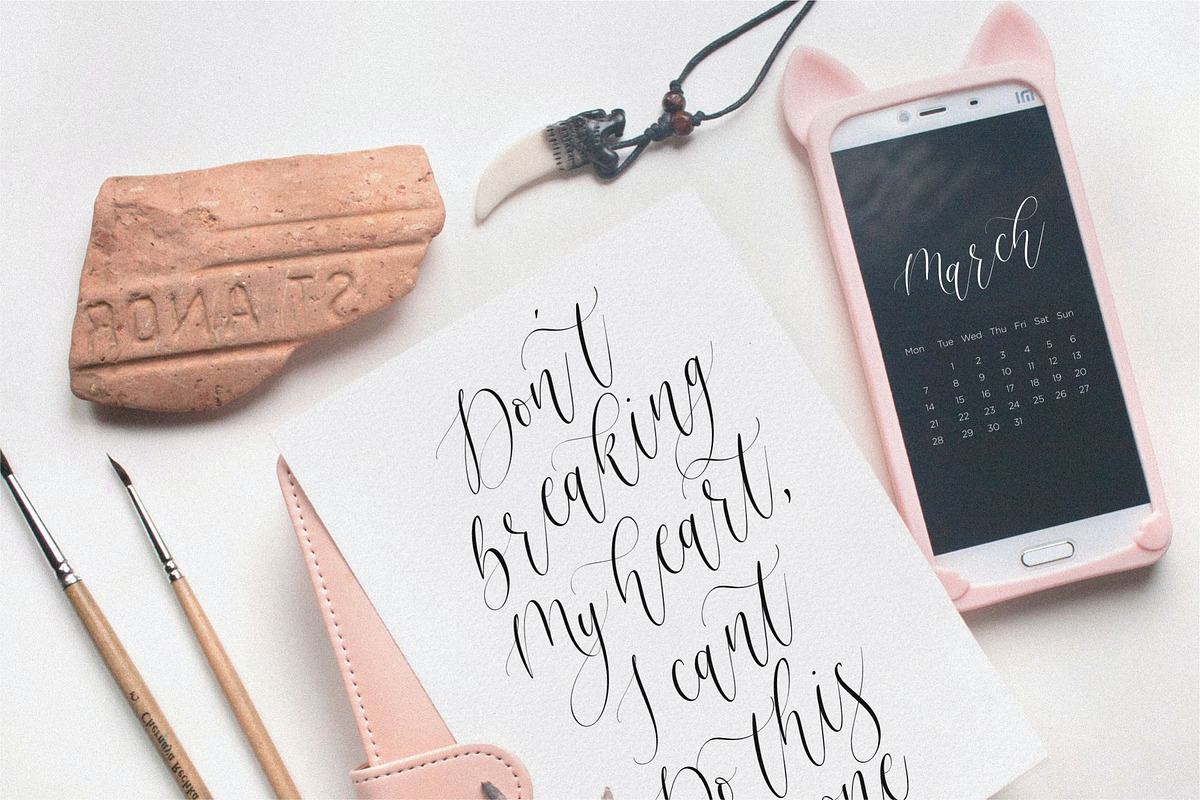 mi
March
Mon Tue Wed Thu Fri Sat Sun
1 2 3 4 5 6
7 8 9 10 11 12 13
14 15 16 17 18 19 20
21 22 23 24 25 26 27
28 29 30 31
Don't
breaking
My heart,
I cant
Do this
one
3 Chernaya Rechka